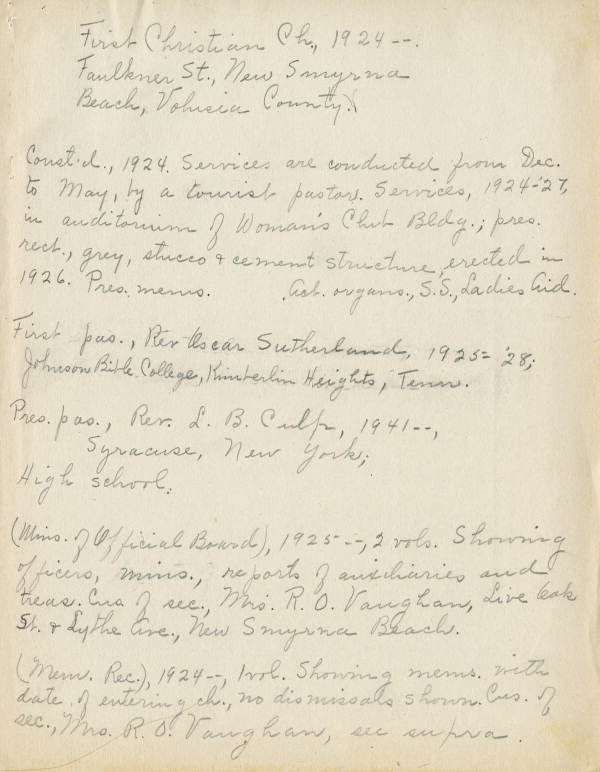 First Christian Ch., 1924--.
Faulkner St., New Smyrna
Beach, Volusia County.
Const'd., 1924. Services are conducted from Dec.
to May, by a tourist pastor. Services, 1924-'27,
in auditorium of Woman's Club Bldg.; pres.
rect., grey, stucco & cement structure, erected in
1926. Pres. mems. Act. organs., S.S., Ladies Aid.
First pas., Rev Oscar Sutherland, 1925-'28;
Johnson Bible College, Kimberlin Heights, Tenn.
Pres. pas., Rev. L. B. Culp, 1941--,
Syracuse, New York;
High school.
(Mins. of Official Board), 1925--, 2 vols. Showing
officers, mins., reports of auxiliaries and
treas. Cus. of sec., Mrs. R. O. Vaughan, Live Oak
St. & Lythe Ave., New Smyrna Beach.
(Mem. Rec.), 1924--, 1 vol. Showing mems. with
date of entering ch., no dismissals shown. Cus. of
sec., Mrs. R. O. Vaughan, see supra.